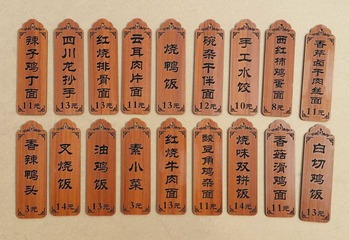 辣子鸡丁面
11元
四川龙抄手
13元
红烧排骨面
13元
云耳肉片面
11元
烧鸭饭
13元
碗杂干伴面
12元
手工水饺
10元
西红柿鸡蛋面
8元
香芹卤干肉丝面
11元
香辣鸭头
3元
叉烧饭
14元
油鸡饭
13元
素小菜
5元
红烧牛肉面
13元
酸豆角鸡杂面
11元
烧味双拼饭
14元
香菇滑鸡面
11元
白切鸡饭
13元